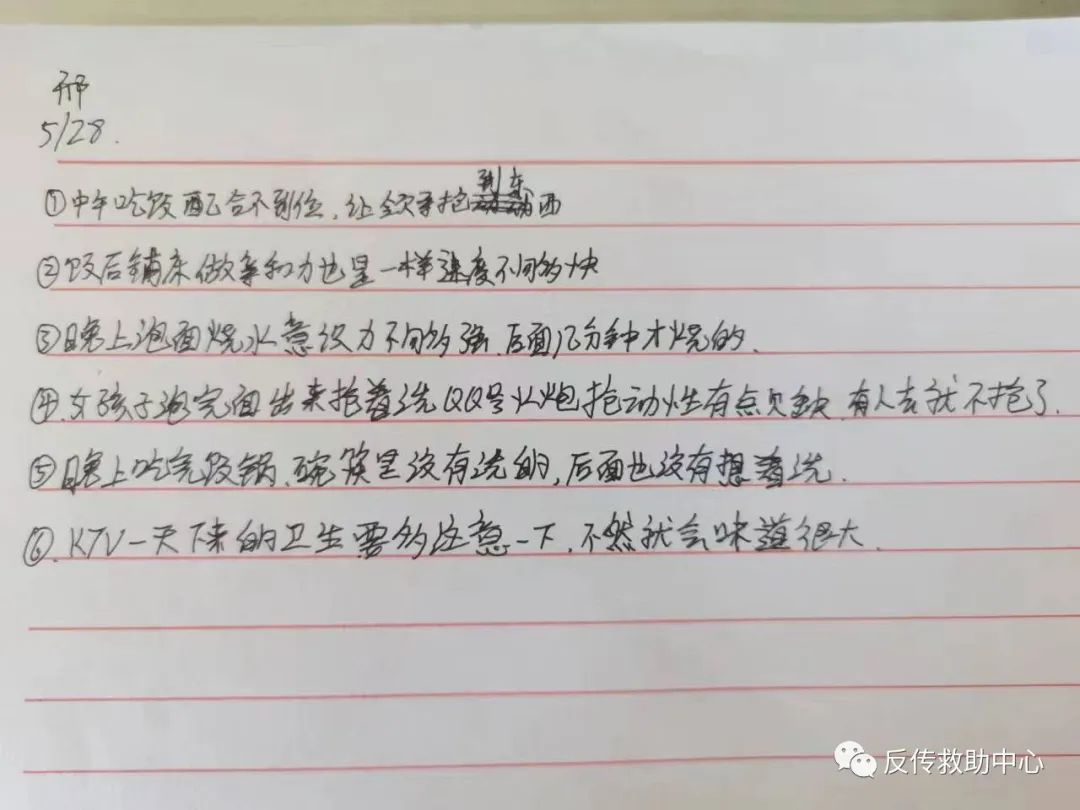 邢
5/28.
①中午吃饭配合不到位,让欠抢到东西
②饭后铺床做亲和力也是一样速度不间的快
③晚上泡面烧水意识力不间的强,后面几分钟才烧的.
④.女孩子泡完面出来抢着洗QQ号火炮抢动性有点欠缺,有人去我不抢了.
⑤晚上吃完饭锅、碗筷是没有洗的,后面也没有想着洗.
⑥.KTV一天下来的卫生要多注意一下,不然就会味道很大.
反传救助中心